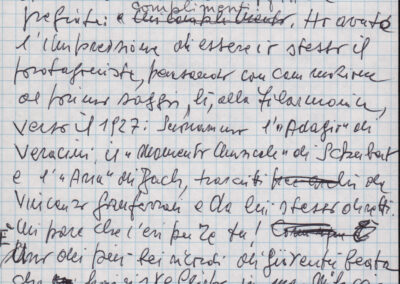 complimenti!!
preferiti e Ho avuto
l'impressione di essere io stesso il
protagonista, pensando con commozione
al primo saggio, lì, alla Filarmonica,
verso il 1927. Suonammo l'"Adagio" di
Veracini, il "Momento Musicale" di Schubert
e l'"Aria" di Bach, trascritti da
Vincenzo e da lui stesso diretti.
Mi pare che c'eri pure tu!
È Uno dei più bei ricordi di gioventù beata
che